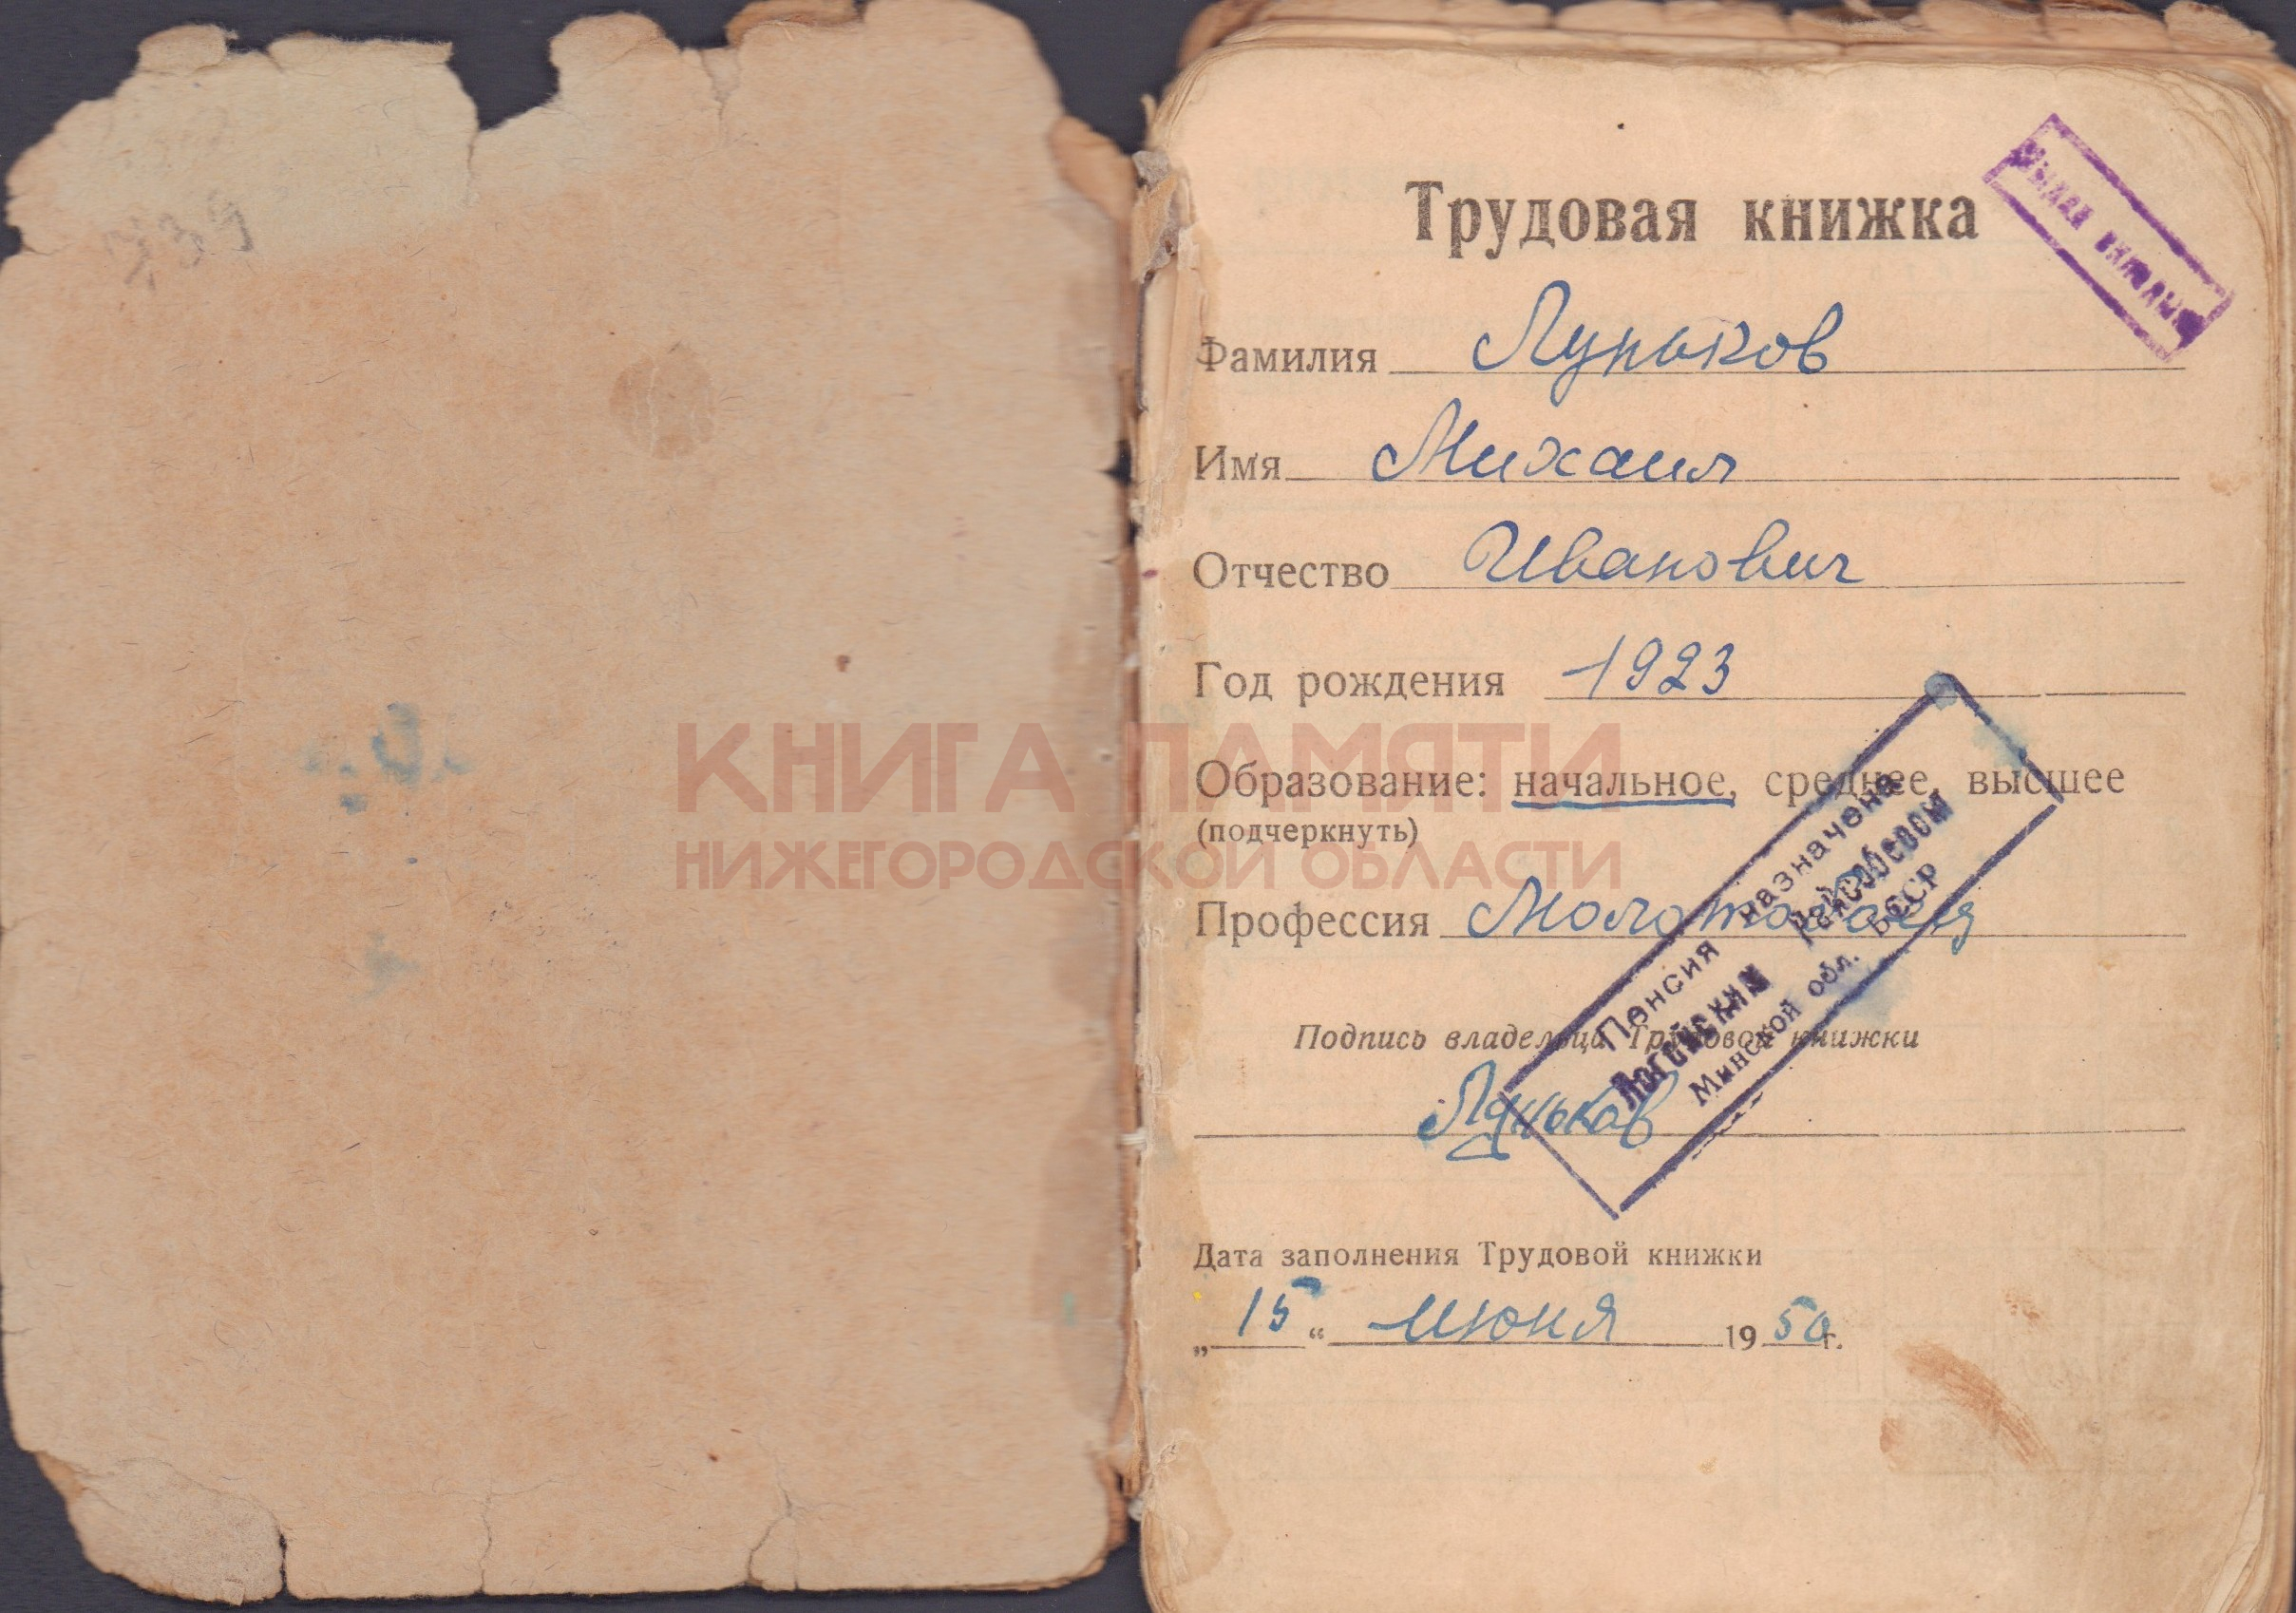 339
Трудовая книжка
Фамилия Луньков
Имя Михаил
Отчество Иванович
Год рождения 1923
КНИГА ПАМЯТИ
Образование: начальное, среднее, высшее
(подчеркнуть)
НИЖЕГОРОДСКОЙ ОБЛАСТИ
Профессия
Пенсия назначена
Логойским Райсобесом
Минской обл. БССР
Подпись владельца Трудовой книжки
Луньков
Дата заполнения Трудовой книжки
„ 15 “ июня 19 50 г.